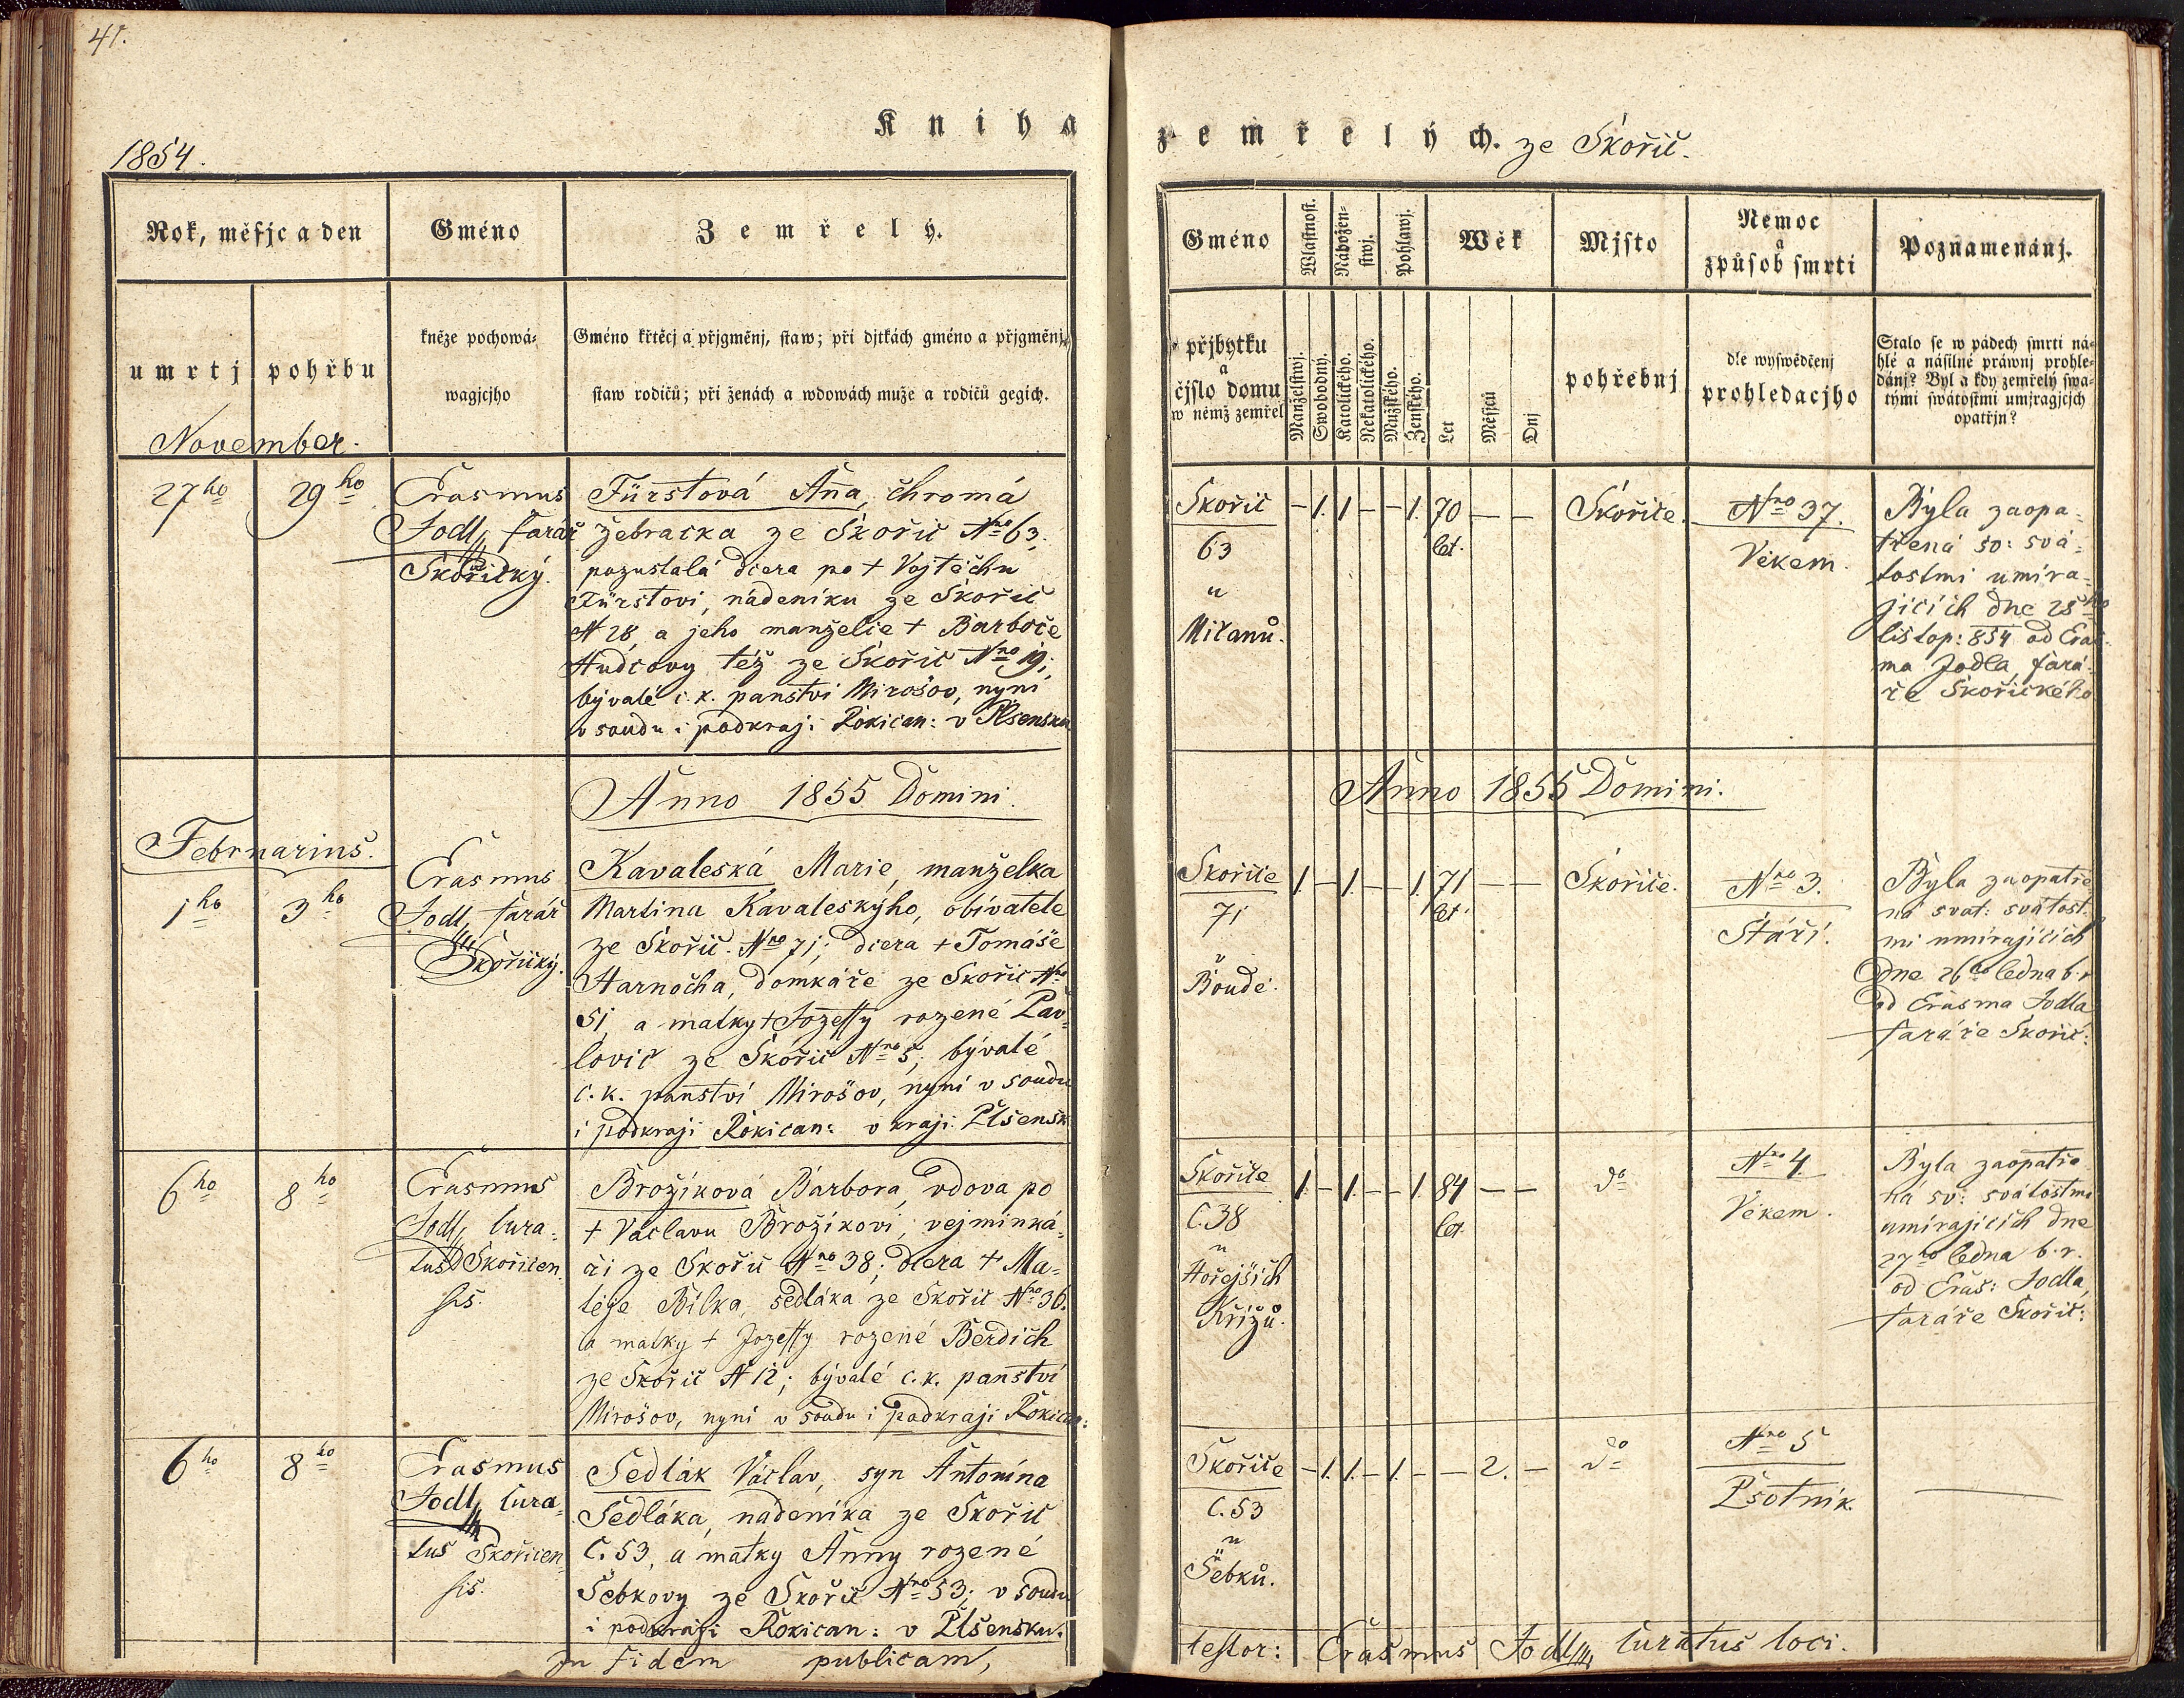 41.
Kniha
1854.
Rok, měsjc a den
Gméno
Zemřelý.
umrtj
pohřbu
kněze pochowá-
wagjcjho
Gméno křtěcj a přjgměnj, staw; při djtkách gméno a přjgměnj,
staw rodičů; při ženách a wdowách muže a rodičů gegich.
November.
27ho
29ho
Erasmus
Jodl, farář
Skořický.
Fürstová Anna, chromá
žebračka ze Skořic Nro 63.
pozustalá dcera po + Vojtěchu
Fürstovi, nádeníku ze Skořic
N 28 a jeho manželce + Barboře
Hudcovy též ze Skořic Nro 19;
bývalé c. k. panství Mirošov, nyní
v soudu i podkraji Rokican: v Plsensku
Anno 1855 Domini.
Februarius.
1ho
3ho
Erasmus
Jodl, farář
Skořický.
Kavaleská Marie, manželka
Martina Kavaleskýho, obivatele
ze Skořic Nro 71; dcera + Tomáše
Harnocha, domkáře ze Skořic Nro
51, a matky + Jozeffy rozené Pav-
lovic ze Skořic Nro 5; bývalé
c. k. panství Mirošov, nyní v soudu
i podkraji Rokican: v kraji Plsensk
6ho
8ho
Erasmus
Jodl, cura-
tus Skoricen
sis.
Brožíková Barbora, vdova po
+ Václavu Brožíkovi, vejminká-
ři ze Skořic Nro 38; dcera + Ma-
těje Bílka, sedláka ze Skořic Nro 36.
a matky + Jozeffy rozené Berdich
ze Skořic N 12; bývalé c. k. panství
Mirošov, nyní v soudu i podkraji Rokican:
6ho
8ho
Erasmus
Jodl, cura-
tus Skoricen
sis.
Sedlák Václav, syn Antonína
Sedláka, nádeníka ze Skořic
C. 53, a matky Anny rozené
Šebkovy ze Skořic Nro 53; v soudu
i podkraji Rokican: v Plsensku.
In fidem publicam,
zemřelých. ze Skořic.
Gméno
Wlastnost.
Nábožen-
stwj.
Pohlawj.
Wěk
Mjsto
Nemoc
a
způsob smrti
Poznamenánj.
přjbytku
a
čjslo domu
w němž zemřel
Manželstwj.
Swobodný.
Katolického.
Nekatolického.
Mužského.
Ženského.
Let
Měsjců
Dnj
pohřebnj
dle wyswědčenj
prohledacjho
Stalo se w pádech smrti ná-
hlé a násilné práwnj prohle-
dánj? Byl a kdy zemřelý swa-
tými swátostmi umjragjcjch
opatřjn?
Skořic
63
u
Micanů.
– 1. 1 – – 1. 70 – –
let.
Skořice.
Nro 37.
Věkem.
Byla zaopa-
třená sv: svá-
tostmi umíra-
jících dne 28ho
listop: 854 od Eras-
ma Jodla, fará-
ře Skořického
Anno 1855 Domini.
Skořice
71
v
Boudě.
1. – 1. – – 1. 71 – –
let.
Skořice.
Nro 3.
Stáří.
Byla zaopatře
ná svat: svátost-
mi umírajících
dne 26ho ledna b. r
od Erasma Jodla
faráře Skořic:
Skořice
C. 38
u
Hořejších
Křížů.
1. – 1. – – 1 84 – –
let.
do
Nro 4.
Věkem.
Byla zaopatře
ná sv: svátostmi
umírajících dne
27ho ledna b. r.
od Eras: Jodla,
faráře Skořic:
Skořice
C. 53
u
Šebků.
– 1. 1. – 1. – – 2. –
do
Nro 5
Psotník.
testor: Erasmus Jodl, curatus loci.